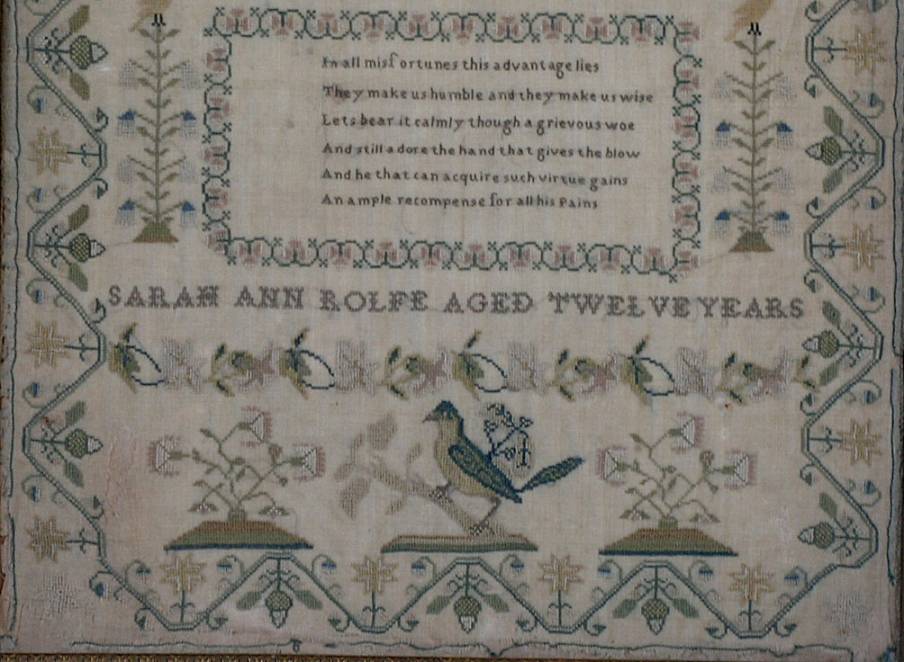 In all misfortunes this advantage lies
They make us humble and they make us wise
Lets bear it calmly though a grievous woe
And still adore the hand that gives the blow
And he that can acquire such virtue gains
An ample recompense for all his Pains
SARAH ANN ROLFE AGED TWELVE YEARS